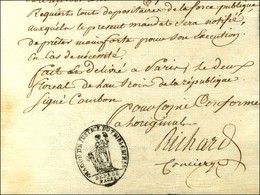 Requiert tout depositaire de la force publique
auxquels le present mandat sera notifié
de prêter mainforte pour son execution
en cas de necessité.
fait et délivré a Paris le deux
floreal de l'an trois de la république
Signé Cambon
Pour Copie Conforme
a l'original
Richard
Concierge